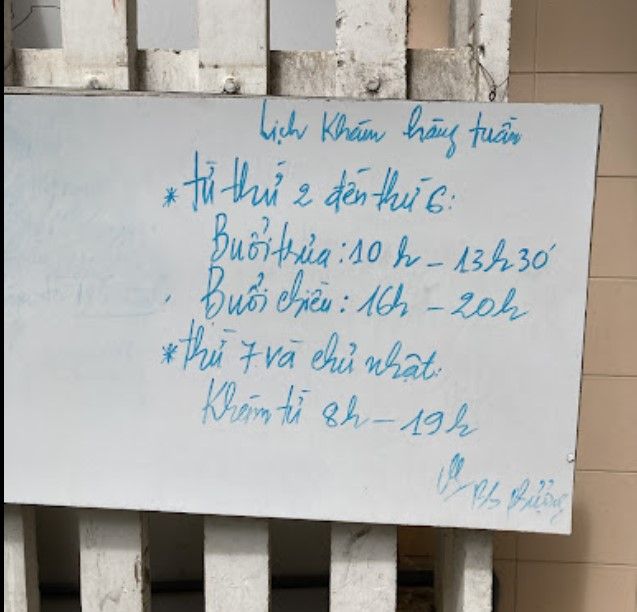 Lịch Khám hằng tuần
* Từ thứ 2 đến thứ 6:
Buổi trưa: 10h - 13h30'
Buổi chiều: 16h - 20h
* Thứ 7 và chủ nhật:
Khám từ 8h - 19h
BS